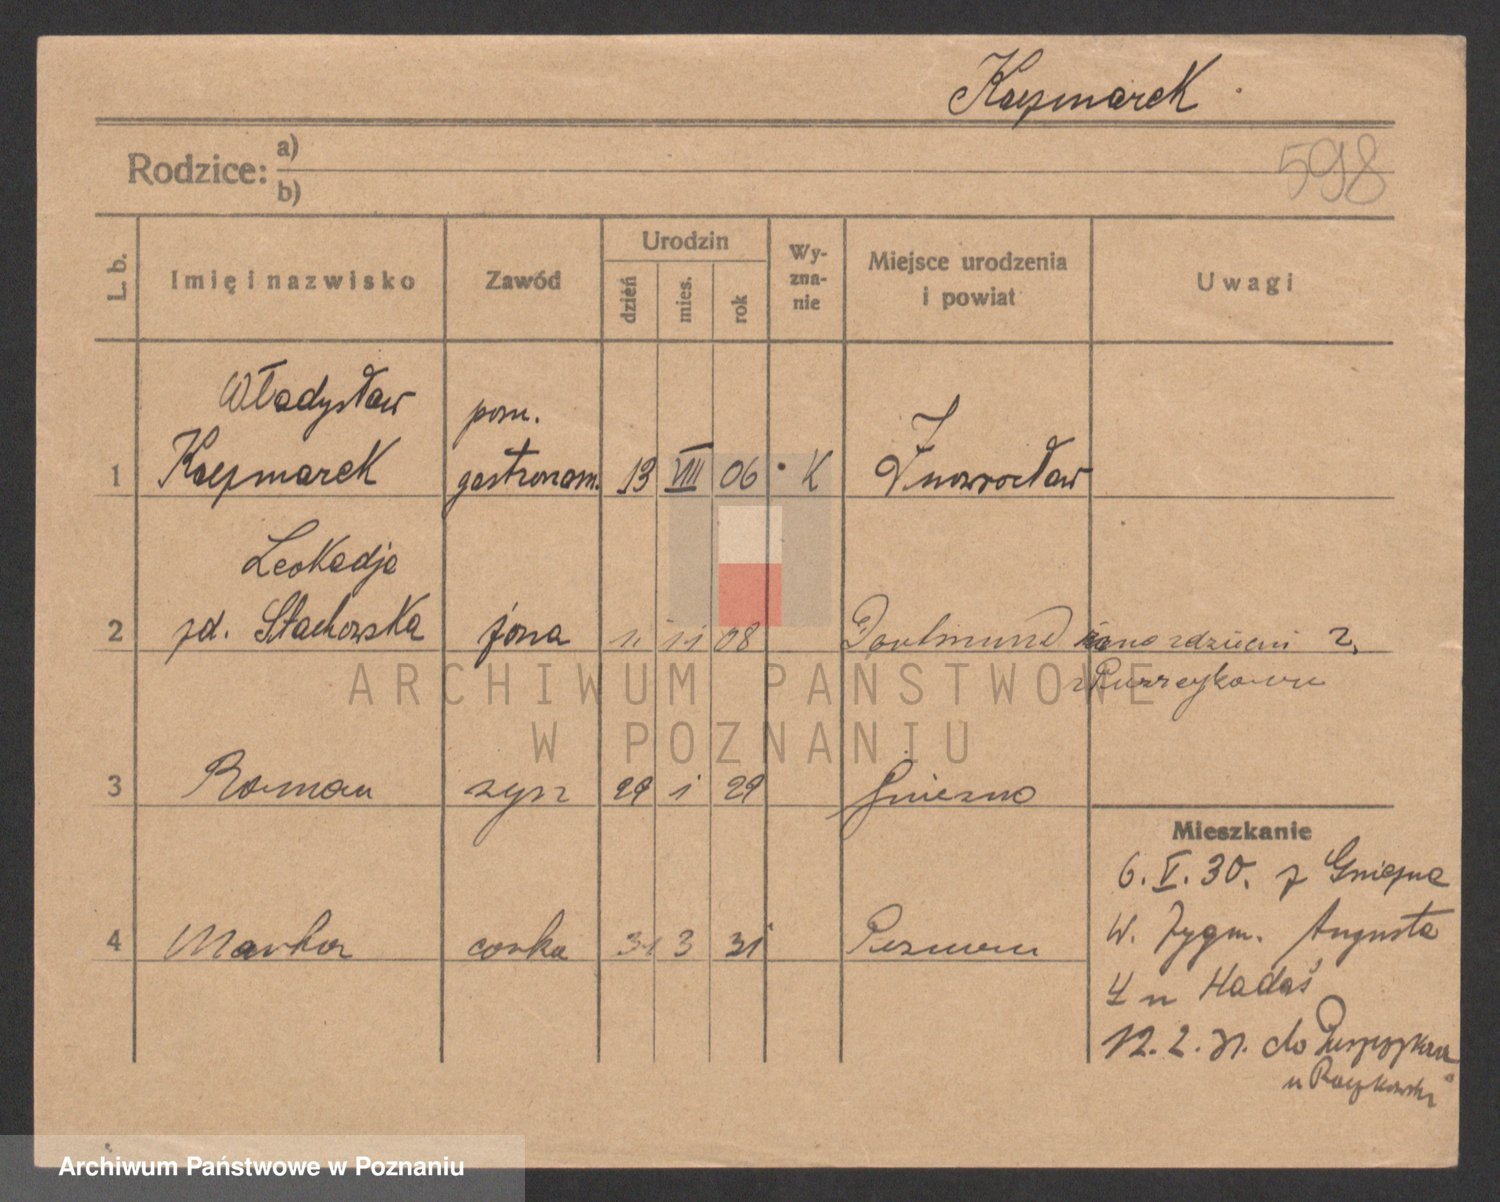 Kaczmarek
Rodzice: a)
b)
598
L. b.
Imię i nazwisko
Zawód
Urodzin
dzień
mies.
rok
Wy-
zna-
nie
Miejsce urodzenia
i powiat
Uwagi
Władysław
pom.
1 Kaczmarek gastronom. 13 VIII 06 K Inowrocław
Leokadja
2 zd. Stachowska żona 11 11 08 Dortmund żona z dziećmi 2.
z Puszczykowa
3 Roman syn 29 1 29 Gniezno
Mieszkanie
6. V. 30. z Gniezna
W. Zygm. Augusta
4 córka 31 3 31 Poznań
4 u Hadaś
12. 2. 31. do Puszczykowa
u Raczkowski
ARCHIWUM PAŃSTWOWE
W POZNANIU
Archiwum Państwowe w Poznaniu